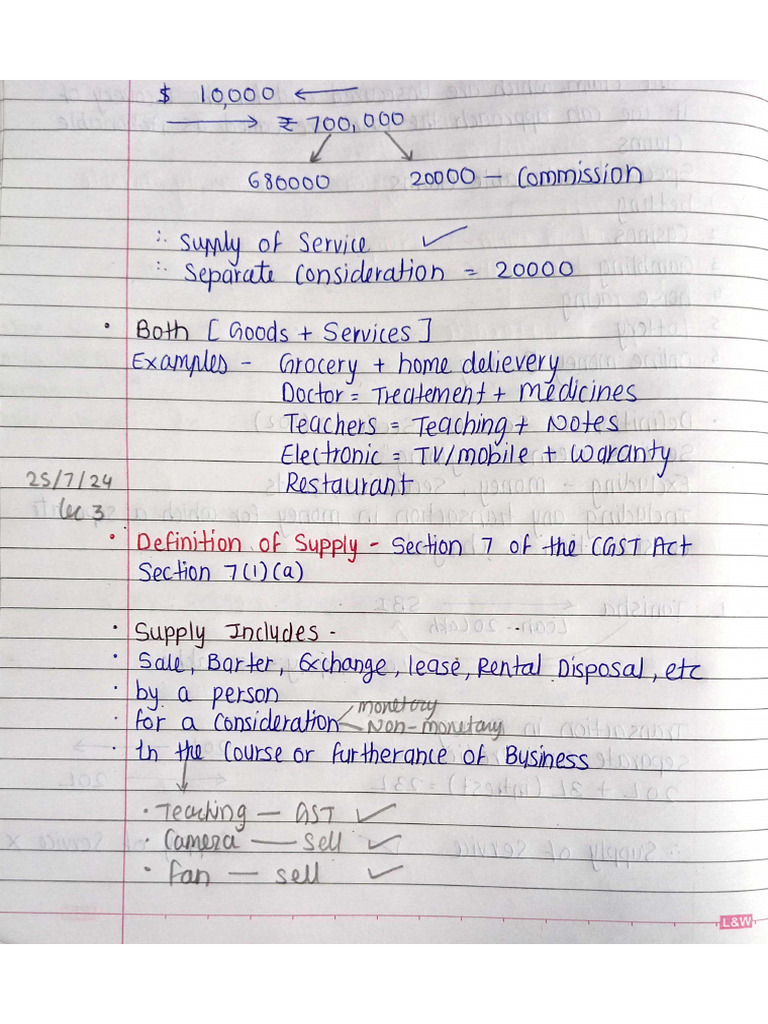 $ 10,000 ←
→ ₹ 700,000
680000 20000 - Commission
∴ Supply of Service ✓
∴ Separate Consideration = 20000
• Both [Goods + Services]
Examples - Grocery + home delievery
Doctor = Treatement + Medicines
Teachers = Teaching + Notes
Electronic = TV/mobile + Waranty
25/7/24 Restaurant
Lec 3
• Definition of Supply - Section 7 of the CGST Act
Section 7(1)(a)
• Supply Includes -
• Sale, Barter, Exchange, lease, Rental Disposal, etc
• by a person
• for a Consideration monetary
Non-monetary
• In the Course or furtherance of Business
• Teaching — GST ✓
• Camera — Sell ✓
• fan — sell ✓
L&W